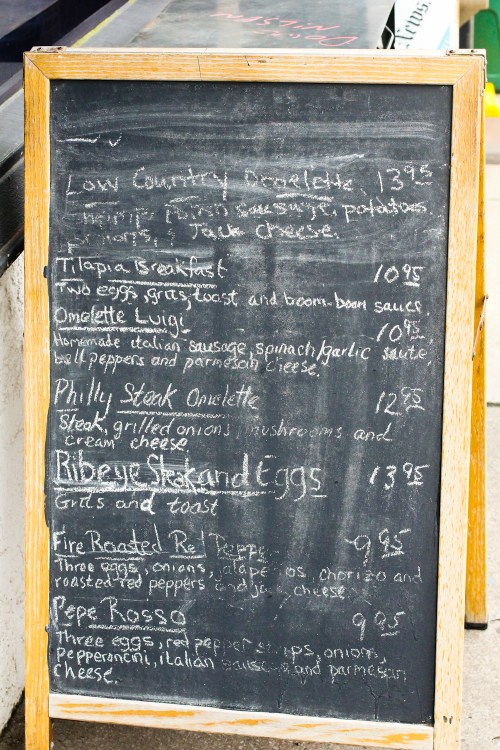 News.
Low Country Omelette, 13.95
shrimp, polish sausage, potatoes,
onions, Jack cheese.
Tilapia Breakfast 10.95
Two eggs, grits, toast and boom-boom sauce.
Omelette Luigi 10.95
Homemade italian sausage, spinach/garlic saute,
bell peppers and parmesan cheese.
Philly Steak Omelette 12.95
Steak, grilled onions, mushrooms and
cream cheese
Ribeye Steak and Eggs 13.95
Grits and toast
Fire Roasted Red Pepper 9.95
Three eggs, onions, and
roasted red peppers and cheese.
Pepe Rosso 9.95
Three eggs, red pepper onions,
pepperoncini, italian sausage and parmesan
cheese.